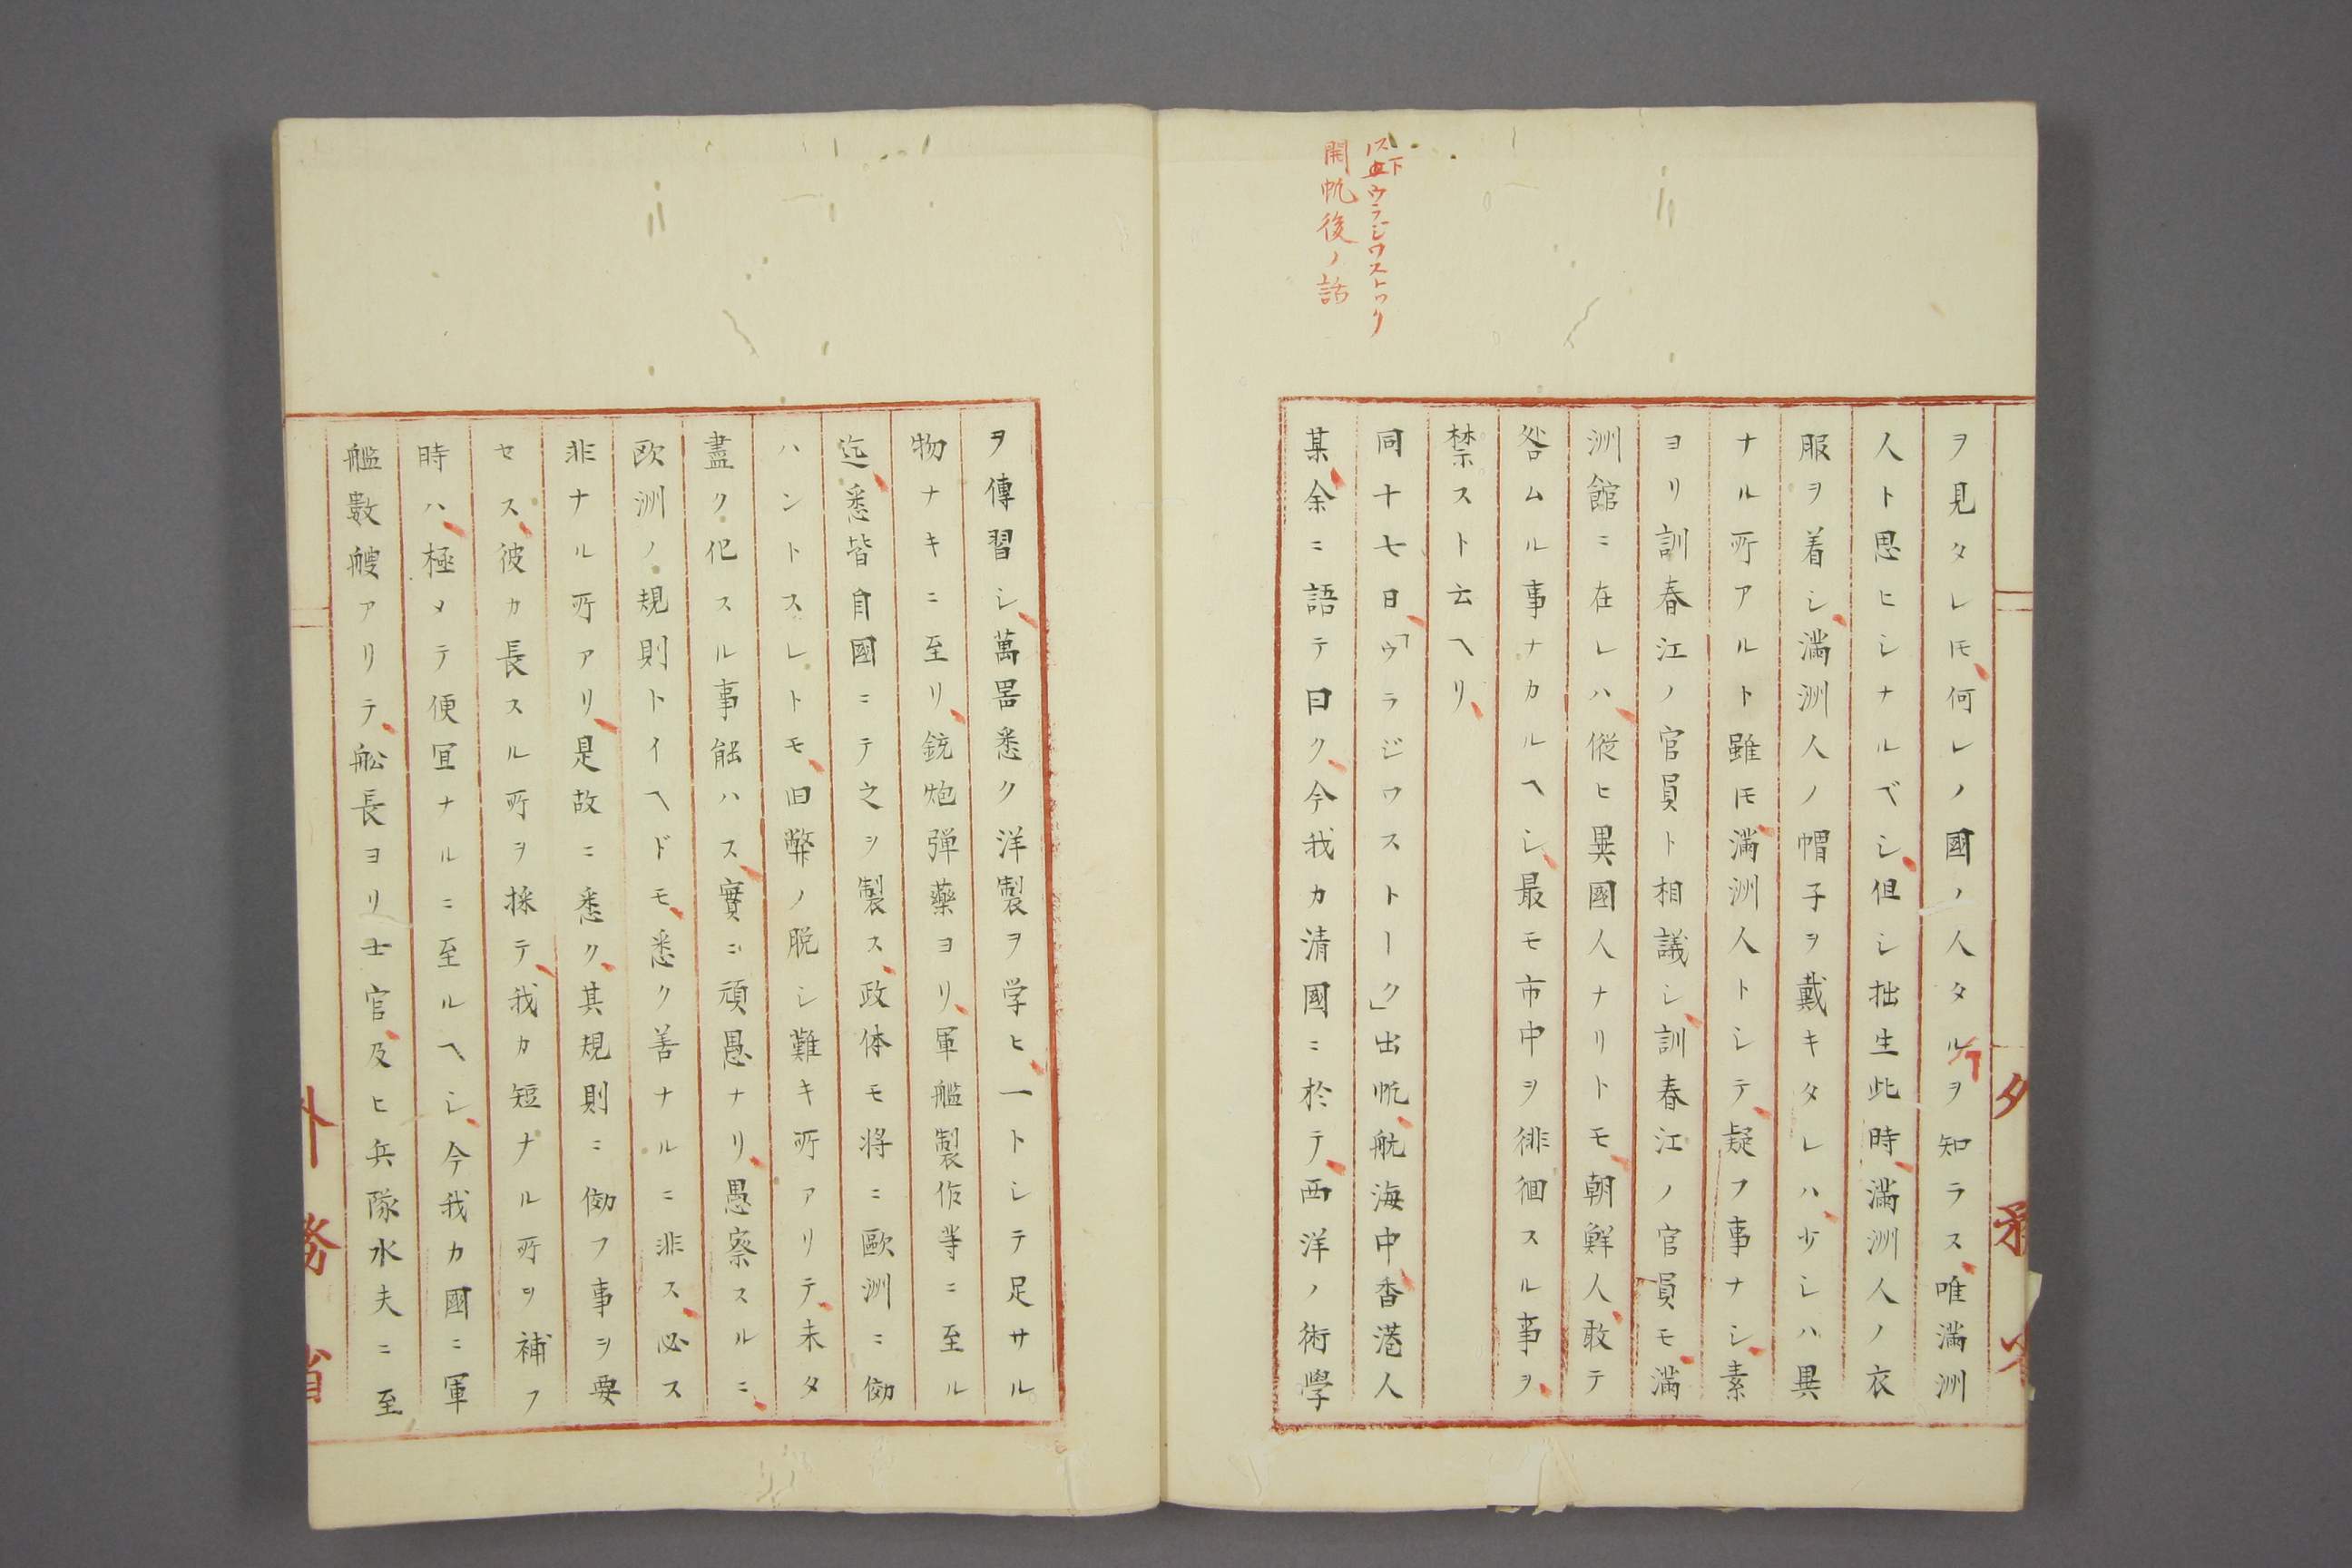 以下ウラジヲストック
開帆後ノ話
ヲ見タレ𪜈何レノ國ノ人タルヲ知ラス唯滿洲
人ト思ヒシナルベシ但シ拙生此時滿洲人ノ衣
服ヲ着シ滿洲人ノ帽子ヲ戴キタレハ少シハ異
ナル所アルト雖𪜈滿洲人トシテ疑フ事ナシ素
ヨリ訓春江ノ官員ト相議シ訓春江ノ官員モ滿
洲館ニ在レハ縦ヒ異國人ナリトモ朝鮮人敢テ
咎ムル事ナカルヘシ最モ市中ヲ徘徊スル事ヲ
禁スト云ヘリ
同十七日「ウラジヲストーク」出帆航海中香港人
某余ニ語テ曰ク今我カ清國ニ於テ西洋ノ術學
ヲ傳習シ萬噐悉ク洋製ヲ学ヒ一トシテ足サル
物ナキニ至リ銃炮弾藥ヨリ軍艦製作等ニ至ル
迄悉皆自國ニテ之ヲ製ス政体モ将ニ歐洲ニ傚
ハントスレトモ旧弊ノ脱シ難キ所アリテ未タ
盡ク化スル事能ハス實ニ頑愚ナリ愚察スルニ
欧洲ノ規則トイヘドモ悉ク善ナルニ非ス必ス
非ナル所アリ是故ニ悉ク其規則ニ傚フ事ヲ要
セス彼カ長スル所ヲ採テ我カ短ナル所ヲ補フ
時ハ極メテ便宜ナルニ至ルヘシ今我カ國ニ軍
艦數艘アリテ舩長ヨリ士官及ヒ兵隊水夫ニ至
外務省